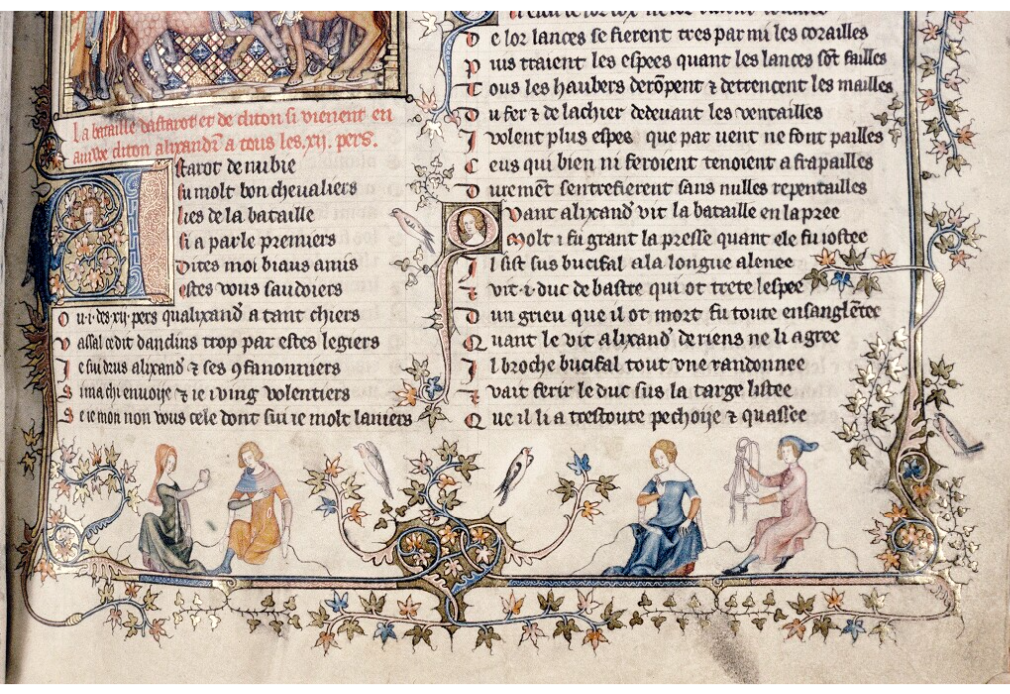 La bataille dastarot et de cliton si vienent en
aiuwe cliton alixand' a tous les .xij. pers.
Astarot de nubie
fu molt bon chevaliers
lies de la bataille
si a parle premiers
Dites moi biaus amis
estes vous saudoiers
O u .i. des .xij. pers qualixand' a tant chiers
V assal ce dit danclins trop par estes legiers
J e sui drus alixand' ⁊ ses ꝯfanonniers
S i ma chi envoije ⁊ ie i ving volentiers
S e ie mon non vous cele dont sui ie molt laniers
D e lor lances se fierent tres par mi les corailles
P uis traient les espees quant les lances sōt failles
T ous les haubers derōpent ⁊ detrencent les mailles
D u fer ⁊ de lachier dedevant les ventailles
J volent plus espes que par vent ne font pailles
C eus qui bien ni feroient tenoient a frapailles
D uremēt sentrefierent sans nulles repentailles
Qvant alixand' vit la bataille en la pree
Molt i fu grant la presse quant ele fu iostee
J l sist sus bucifal a la longue alenee
E vit .i. duc de bastre qui ot trete lespee
D un grieu que il ot mort fu toute ensanglētee
Q uant le vit alixand' de riens ne li agree
J l broche bucifal tout vne randonnee
E vait ferir le duc sus la targe listee
Q ue il li a trestoute pechoije ⁊ quassee